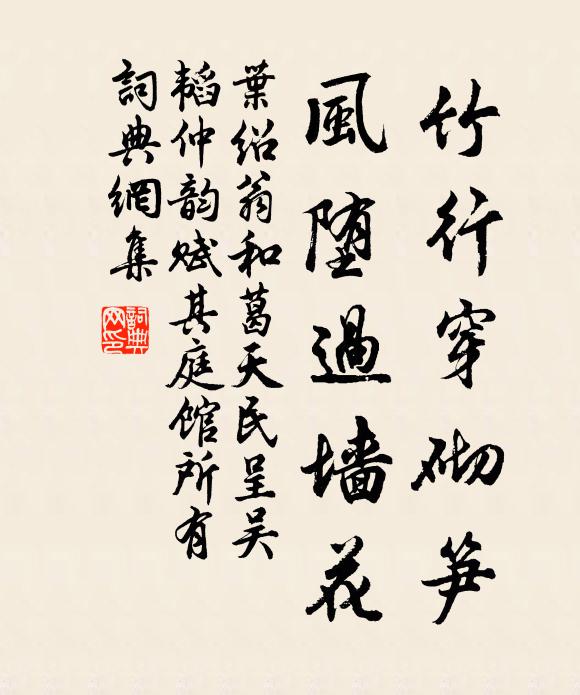 竹行穿砌笋
風堕過墙花
葉紹翁和葛天民呈吴
韜仲韵赋其庭館所有
詞典網集
詞典
网印